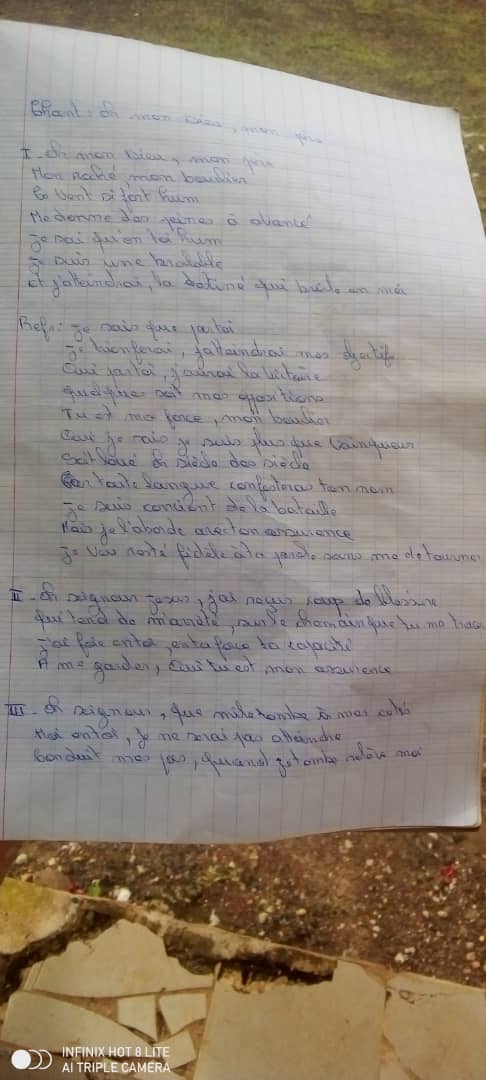 Chant : Oh mon Dieu, mon père
I - Oh mon Dieu, mon père
Mon roché, mon bouclier
Le vent si fort hum
Me donne des peines à avancé
Je sai qu'en toi hum
Je suis une
Et j'atteindrai, la qui brûle en moi
Ref : Je sais que par toi
Je trionferai, j'atteindrai mes objectifs
Oui par toi, j'aurai la victoire
quelques soit mes oppositions
Tu et ma force, mon bouclier
Oui je sais je suis plus que vainqueur
Soit loué Oh siècle des siècle
Car toute langue confesteras ton nom
Je suis concient de la bataille
Mais je l'aborde avec ton assurence
Je veu resté fidèle à ta parole sans me detourner
II - Oh seigneur Jesus, j'ai reçus coup de blessure
qui tend de m'arrêté, sur le chemin que tu me trace
J'ai foie en toi, en ta force ta capacité
À me garder, Oui tu est mon assurence
III - Oh seigneur, que mille tombe à mes cotés
Moi en toi, je ne serai pas atteindre
Conduit mes pas, quand je tombe relève moi
INFINIX HOT 8 LITE
AI TRIPLE CAMERA